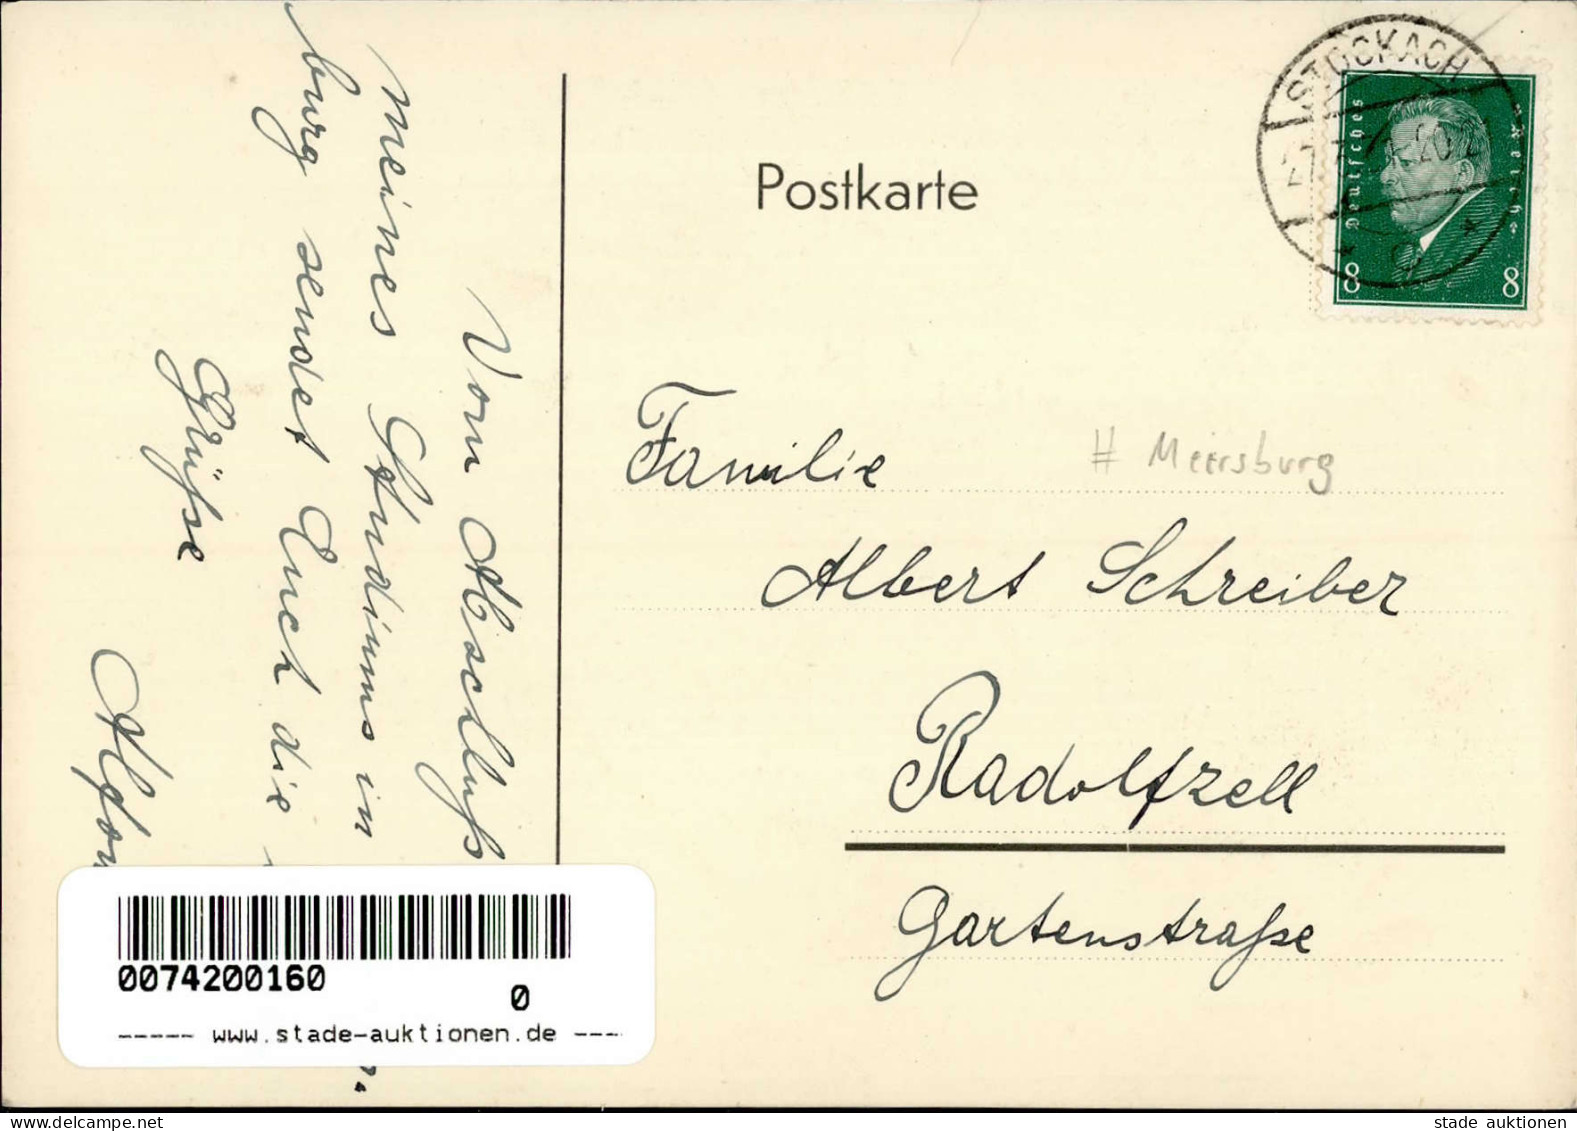 Postkarte
STOCKACH
Deutsches Reich
8 8
# Meersburg
Familie
Albert Schreiber
Radolfzell
Gartenstraße
Vom Abschluß
meines Studiums in
burg sendet Euch die
Grüße
0074200160
0
----- www.stade-auktionen.de ----
www.delcampe.net
stade auktionen